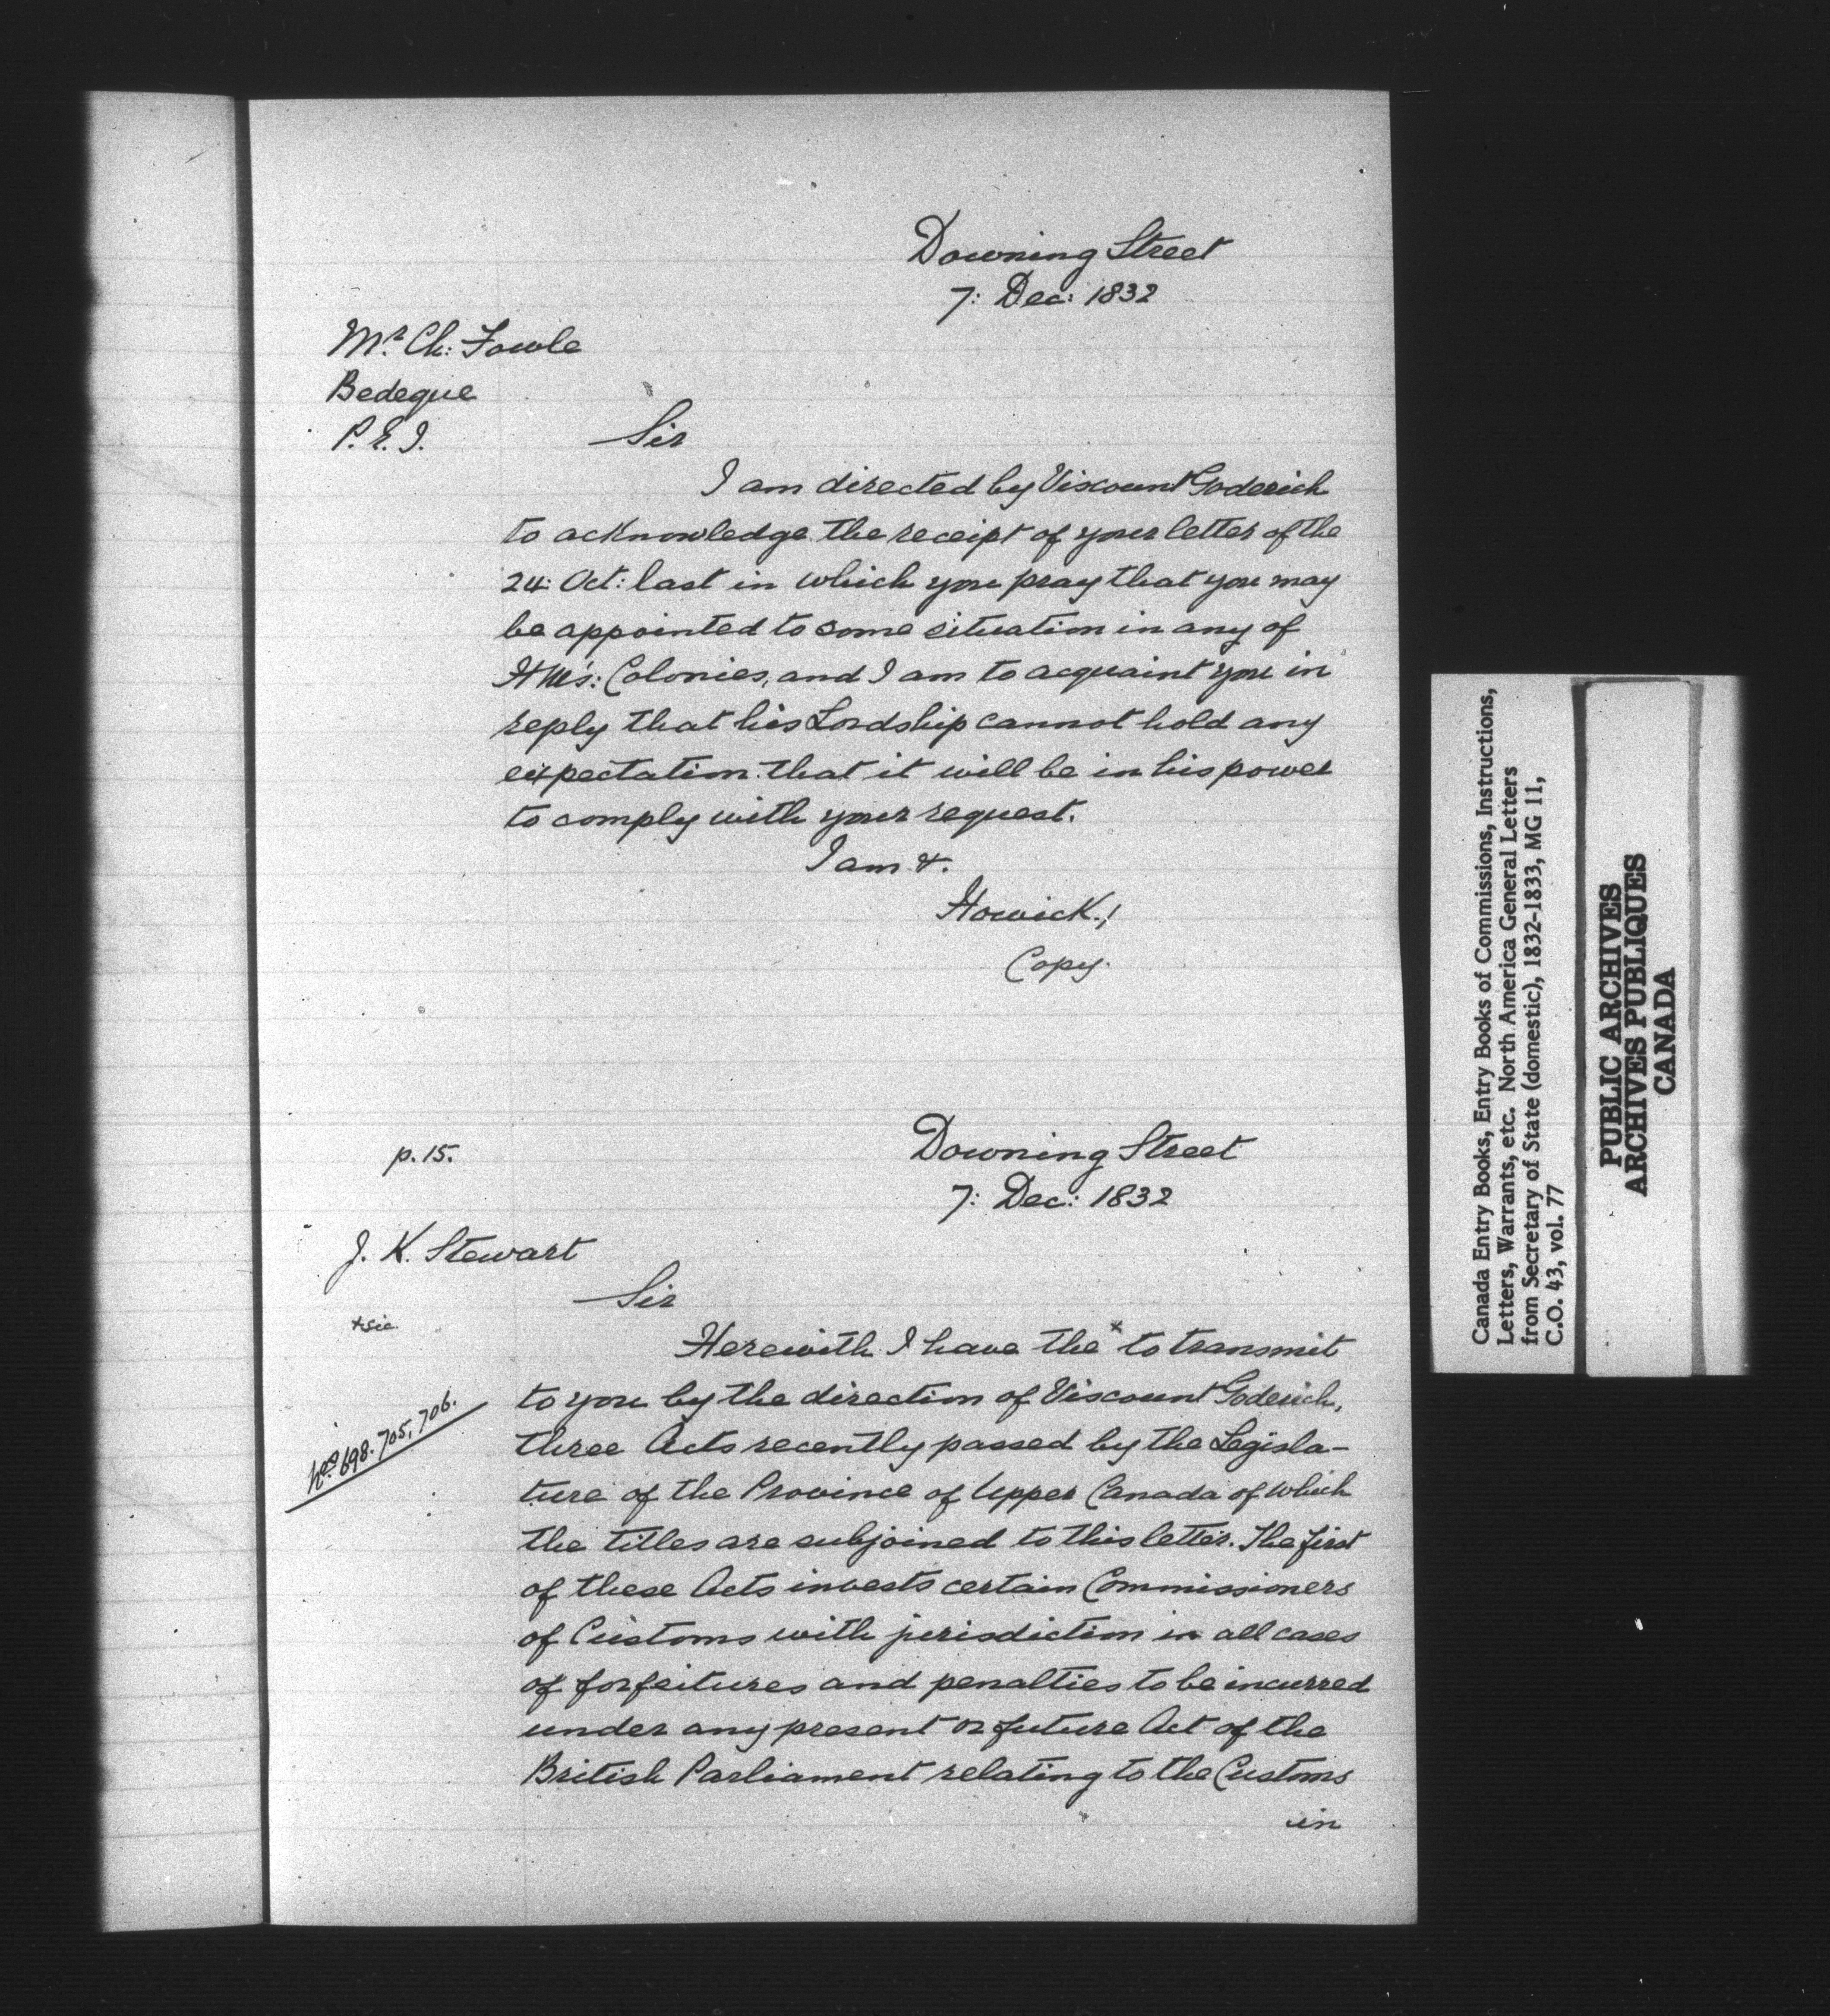 Downing Street
7: Dec: 1832
Mr. Ch: Fowle
Bedeque
P.E.I.
Sir
I am directed by Viscount Goderich
to acknowledge the receipt of your letter of the
24: Oct: last in which you pray that you may
be appointed to some situation in any of
HM's: Colonies, and I am to acquaint you in
reply that his Lordship cannot hold any
expectation that it will be in his power
to comply with your request.
I am &.
Howick.
Copy.
p. 15.
Downing Street
7: Dec: 1832
J. K. Stewart
Sir
x sic
Herewith I have the x to transmit
to you by the direction of Viscount Goderich,
Nos. 698. 705, 706.
three Acts recently passed by the Legisla-
ture of the Province of Upper Canada of which
the titles are subjoined to this letter. The first
of these Acts invests certain Commissioners
of Customs with jurisdiction in all cases
of forfeitures and penalties to be incurred
under any present or future Act of the
British Parliament relating to the Customs
in
Canada Entry Books, Entry Books of Commissions, Instructions,
Letters, Warrants, etc. North America General Letters
from Secretary of State (domestic), 1832-1833, MG 11,
C.O. 43, vol. 77
PUBLIC ARCHIVES
ARCHIVES PUBLIQUES
CANADA